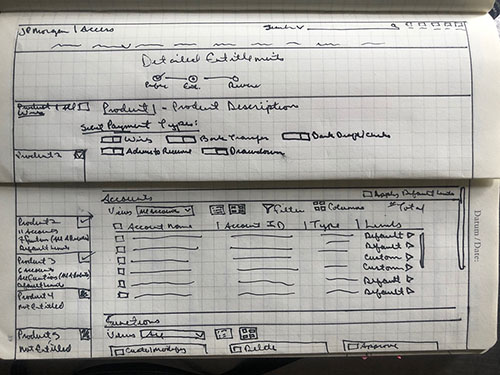 JPMorgan | Access Search
Detailed Entitlements
Profile Ent. Review
Product 1 All
Wires
Product 1 - Product Description
Select Payment Types:
Wires Bank Transfer Bank Draft/Checks
Product 2
Advice to Receive Drawdown
Accounts Apply Default Limits
View All Accounts Filter Columns # Total
Product 2
11 Accounts
Account Name | Account ID | Type | Limits
Default
Default Limits
Default
Product 3
Custom
Accounts
Custom
Default Limits
Default
Product 4
Not Entitled
Default
Functions
Product 5
View All
Not Entitled
Create/Modify Delete Approve
Datum / Date: